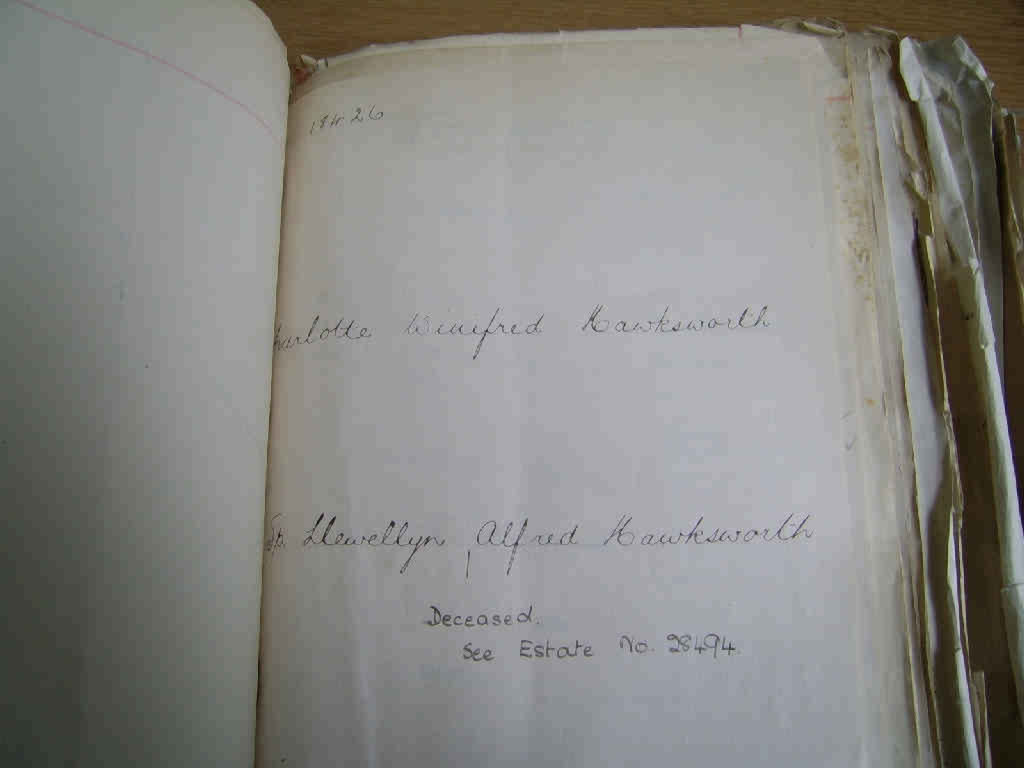 harlotte Winifred Hawksworth
Sp. Llewellyn Alfred Hawksworth
Deceased.
See Estate No. 28494.